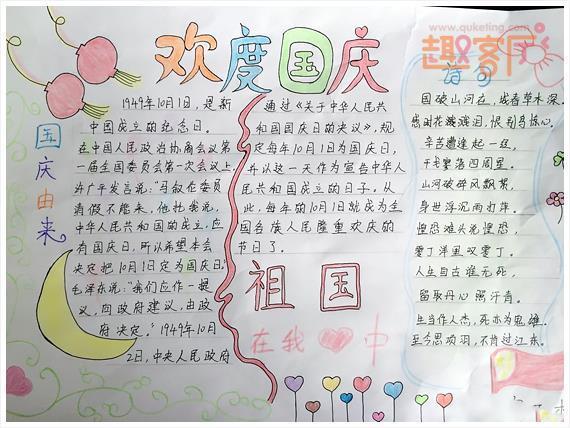 www.quketing.com
趣客网
欢度国庆
国庆由来
1949年10月1日,是新
中国成立的纪念日。
在中国人民政治协商会议第
一届全国委员会第一次会议上,
许广平发言说:"马叙伦委员
请假不能来,他托我说,
中华人民共和国的成立,应
有国庆日,所以希望本会
决定把10月1日定为国庆日。"
毛泽东说:"我们应作一提
议,向政府建议,由政
府决定。"1949年10月
2日,中央人民政府
通过《关于中华人民共
和国国庆日的决议》,规
定每年10月1日为国庆日,
并以这一天作为宣告中华人
民共和国成立的日子。从
此,每年的10月1日就成为全
国各族人民隆重欢庆的
节日了。
祖国
在我中
诗句
国破山河在,城春草木深。
感时花溅泪,恨别鸟惊心。
辛苦遭逢起一经,
干戈寥落四周星。
山河破碎风飘絮,
身世浮沉雨打萍。
惶恐滩头说惶恐,
零丁洋里叹零丁。
人生自古谁无死,
留取丹心照汗青。
生当作人杰,死亦为鬼雄。
至今思项羽,不肯过江东。